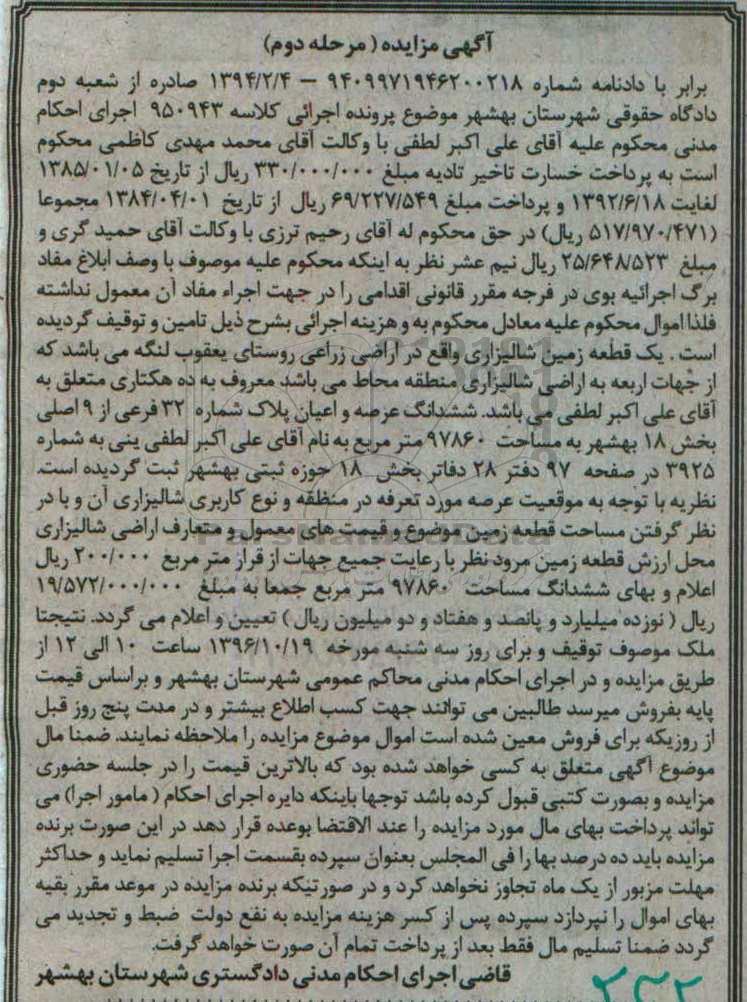 آگهی مزایده (مرحله دوم)
برابر با دادنامه شماره ۹۴۰۹۹۷۱۹۴۶۲۰۰۲۱۸ – ۱۳۹۴/۲/۴ صادره از شعبه دوم
دادگاه حقوقی شهرستان بهشهر موضوع پرونده اجرائی کلاسه ۹۵۰۹۴۳ اجرای احکام
مدنی محکوم علیه آقای علی اکبر لطفی با وکالت آقای محمد مهدی کاظمی محکوم
است به پرداخت خسارت تاخیر تادیه مبلغ ۳۳۰/۰۰۰/۰۰۰ ریال از تاریخ ۱۳۸۵/۰۱/۰۵
لغایت ۱۳۹۲/۶/۱۸ و پرداخت مبلغ ۶۹/۲۲۷/۵۴۹ ریال از تاریخ ۱۳۸۴/۰۴/۰۱ مجموعا
(۵۱۷/۹۷۰/۴۷۱ ریال) در حق محکوم له آقای رحیم ترزی با وکالت آقای حمید گری و
مبلغ ۲۵/۶۴۸/۵۲۳ ریال نیم عشر نظر به اینکه محکوم علیه موصوف با وصف ابلاغ مفاد
برگ اجرائیه بوی در فرجه مقرر قانونی اقدامی را در جهت اجراء مفاد آن معمول نداشته
فلذا اموال محکوم علیه معادل محکوم به و هزینه اجرائی بشرح ذیل تامین و توقیف گردیده
است . یک قطعه زمین شالیزاری واقع در اراضی زراعی روستای یعقوب لنگه می باشد که
از جهات اربعه به اراضی شالیزاری منطقه محاط می باشد معروف به ده هکتاری متعلق به
آقای علی اکبر لطفی می باشد. ششدانگ عرصه و اعیان پلاک شماره ۳۲ فرعی از ۹ اصلی
بخش ۱۸ بهشهر به مساحت ۹۷۸۶۰ متر مربع به نام آقای علی اکبر لطفی ینی به شماره
۳۹۲۵ در صفحه ۹۷ دفتر ۲۸ دفاتر بخش ۱۸ حوزه ثبتی بهشهر ثبت گردیده است.
نظریه با توجه به موقعیت عرصه مورد تعرفه در منطقه و نوع کاربری شالیزاری آن و با در
نظر گرفتن مساحت قطعه زمین موضوع و قیمت های معمول و متعارف اراضی شالیزاری
محل ارزش قطعه زمین مرود نظر با رعایت جمیع جهات از قرار متر مربع ۲۰۰/۰۰۰ ریال
اعلام و بهای ششدانگ مساحت ۹۷۸۶۰ متر مربع جمعا به مبلغ ۱۹/۵۷۲/۰۰۰/۰۰۰
ریال (نوزده میلیارد و پانصد و هفتاد و دو میلیون ریال) تعیین و اعلام می گردد. نتیجتا
ملک موصوف توقیف و برای روز سه شنبه مورخه ۱۳۹۶/۱۰/۱۹ ساعت ۱۰ الی ۱۲ از
طریق مزایده و در اجرای احکام مدنی محاکم عمومی شهرستان بهشهر و براساس قیمت
پایه بفروش میرسد طالبین می توانند جهت کسب اطلاع بیشتر و در مدت پنج روز قبل
از روزیکه برای فروش معین شده است اموال موضوع مزایده را ملاحظه نمایند. ضمنا مال
موضوع آگهی متعلق به کسی خواهد شده بود که بالاترین قیمت را در جلسه حضوری
مزایده و بصورت کتبی قبول کرده باشد توجها باینکه دایره اجرای احکام (مامور اجرا) می
تواند پرداخت بهای مال مورد مزایده را عند الاقتضا بوعده قرار دهد در این صورت برنده
مزایده باید ده درصد بها را فی المجلس بعنوان سپرده بقسمت اجرا تسلیم نماید و حداکثر
مهلت مزبور از یک ماه تجاوز نخواهد کرد و در صورتیکه برنده مزایده در موعد مقرر بقیه
بهای اموال را نپردازد سپرده پس از کسر هزینه مزایده به نفع دولت ضبط و تجدید می
گردد ضمنا تسلیم مال فقط بعد از پرداخت تمام آن صورت خواهد گرفت.
قاضی اجرای احکام مدنی دادگستری شهرستان بهشهر